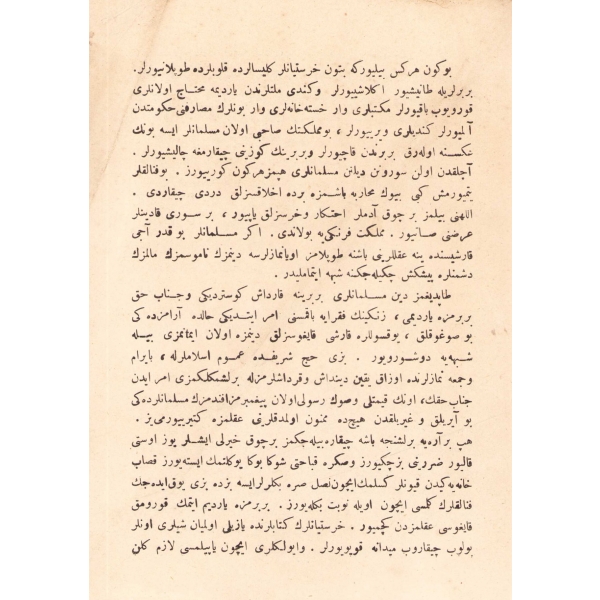 بوكون هركس بيليوركه بتون خرستيانلر كليسالرده قلوبلرده طوپلانيورلر.
بربرلريله طانيشيور اكلاشييورلر وكندى ملتلرندن يارديمه محتاج اولانلرى
قورويوب باقيورلر مكتبلرى وار خسته خانه‌لرى وار بونلرك مصارفنى حكومتدن
آلميورلر كنديلرى ويرييورلر ، بومملكتك صاحبى اولان مسلمانلر ايسه بونك
عكسنه اوله‌رق بربرندن قاچيورلر وبربرينك كوزينى چيقارمغه چاليشيورلر.
آجلقدن اولن سورونن ديلنن مسلمانلرى هپمز هركون كورييورز . بوفنالقلر
يتميورمش كبى بيوك محاربه باشمزه برده اخلاقسزلق دردى چيقاردى .
اللهنى بيلمز بر چوق آدملر احتكار وخرسزلق ياپيور ، بر سورى قادينلر
عرضنى صاتيور . مملكت فرنكى‌يه بولاندى . اكر مسلمانلر بو قدر آجى
قارشيسنده ينه عقللرينى باشنه طوپلامز اويانمازلرسه دينمزك ناموسمزك مالمزك
دشمنلره پيشكش چكيله‌جكنه شبهه ايتمامليدر .
طاپديغمز دين مسلمانلرى بربرينه قارداش كوستردىكى وجناب حق
بربرمزه يارديمى ، زنكينك فقرايه باقمنى امر ايتديكى حالده آرامزده‌كى
بو صوغوقلق ، يوقسوللره قارشى قايغوسزلق دينمزه اولان ايمانمزى بيله
شبهه‌يه دوشورويور . بزى حج شريفده عموم اسلاملرله ، بايرام
وجمعه نمازلرنده اوزاق يقين دينداش وقرداشلرمزله برلشمكلكمزى امر ايدن
جناب حقك، اونك قيمتلى وصوك رسولى اولان پيغمبرمز افندمزك مسلمانلرده‌كى
بو آيريلق و غيريلقدن هيچ‌ده ممنون اولمدقلرينى عقلمزه كتيرييورمى‌يز .
هپ بر آره‌يه برلشنجه باشه چيقاره‌بيله‌جكمز برچوق خيرلى ايشلر يوز اوستى
قاليور ضررينى بز چكييورز وصكره قباحتى شوكا بوكا يوكلتمك ايسته‌يورز قصاب
خانه‌يه كيدن قيونلر كسلمك ايچون نصل صره بكلرلر ايسه بزده بزى يوق ايده‌جك
فنالقلرك كلمسى ايچون اويله نوبت بكله‌يورز . بربرمزه يارديم ايتمك قورومق
قايغوسى عقلمزدن كچميور . خرستيانلرك كتابلرنده يازيلى اولميان شيلرى اونلر
بولوب چيقاروب ميدانه قويويورلر . وايولكلرى ايچون ياپيلمسى لازم كلن